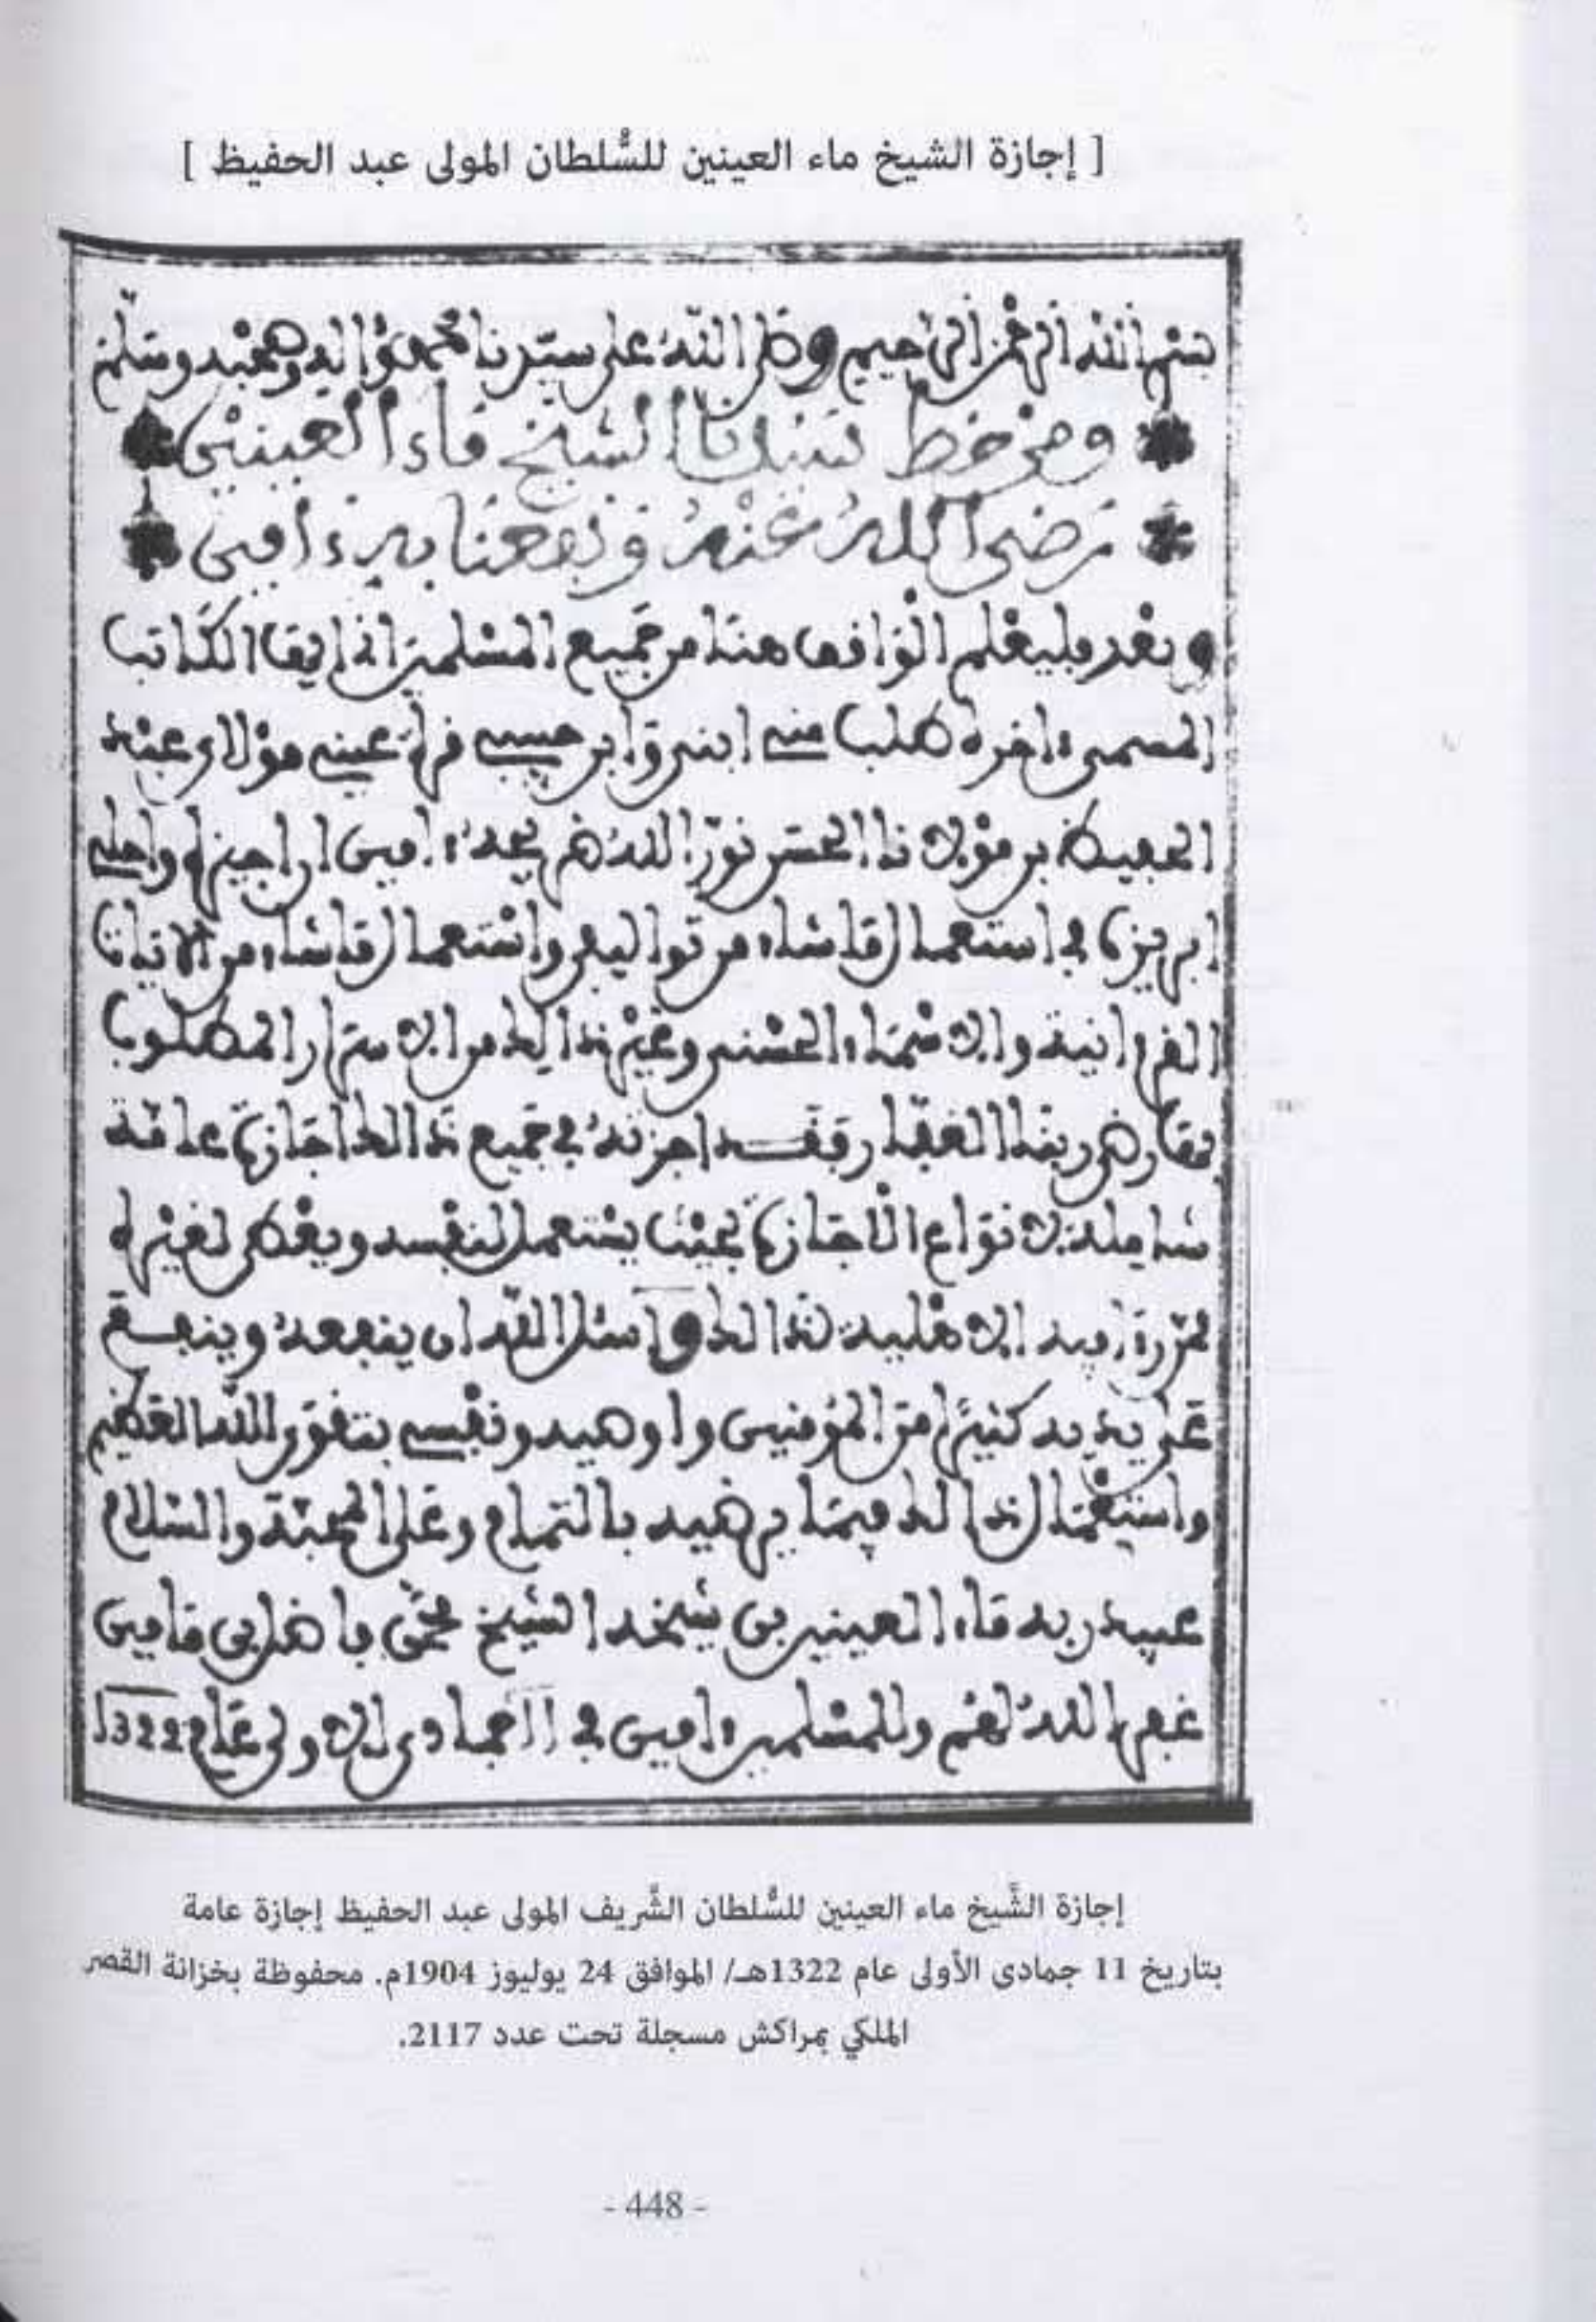 [ إجازة الشيخ ماء العينين للسُّلطان المولى عبد الحفيظ ]
بسم الله الرحمن الرحيم وصلى الله على سيدنا محمد وءاله وصحبه وسلم
ومن خط شيخنا الشيخ ماء العينين
رضي الله عنه ونفعنا به ءامين
وبعد فليعلم الواقف هنا من جميع المسلمين اذ ايقا الكاتب
المسمى ءاخره طلب مني ابني وابن حبيبي قرة عيني مولاي عبد
الحفيظ بن مولانا الحسن نور الله ضريحه ءامين ان اجيزه واجلي
ابريزه في استعمال ما شاء من تواليفي واستعمال ما شاء من الايات
القرءانية والاسماء الحسنى وغير ذالك من الاسرار المطلوب
فقد اجزته في جميع ذالك اجازة عامة
شاملة لانواع الاجازة بحيث يستعمل لنفسه ويعطي لغيره
ممن رءا فيه الاهلية لذالك واسئل الله ان ينفعه وينفع
على يديه كثيرا من المومنين واوصيه ونفسي بتقوى الله العظيم
واستعمال ذالك فيما يرضيه بالتمام وعلى المحبة والسلام
عبيد ربه ماء العينين بن شيخه الشيخ محمد فاضل بن مامين
غفر الله لهم وللمسلمين ءامين في 11 جمادى الاولى عام 1322
إجازة الشَّيخ ماء العينين للسُّلطان الشَّريف المولى عبد الحفيظ إجازة عامة
بتاريخ 11 جمادى الأولى عام 1322هـ/ الموافق 24 يوليوز 1904م. محفوظة بخزانة القصر
الملكي بمراكش مسجلة تحت عدد 2117.
- 448 -